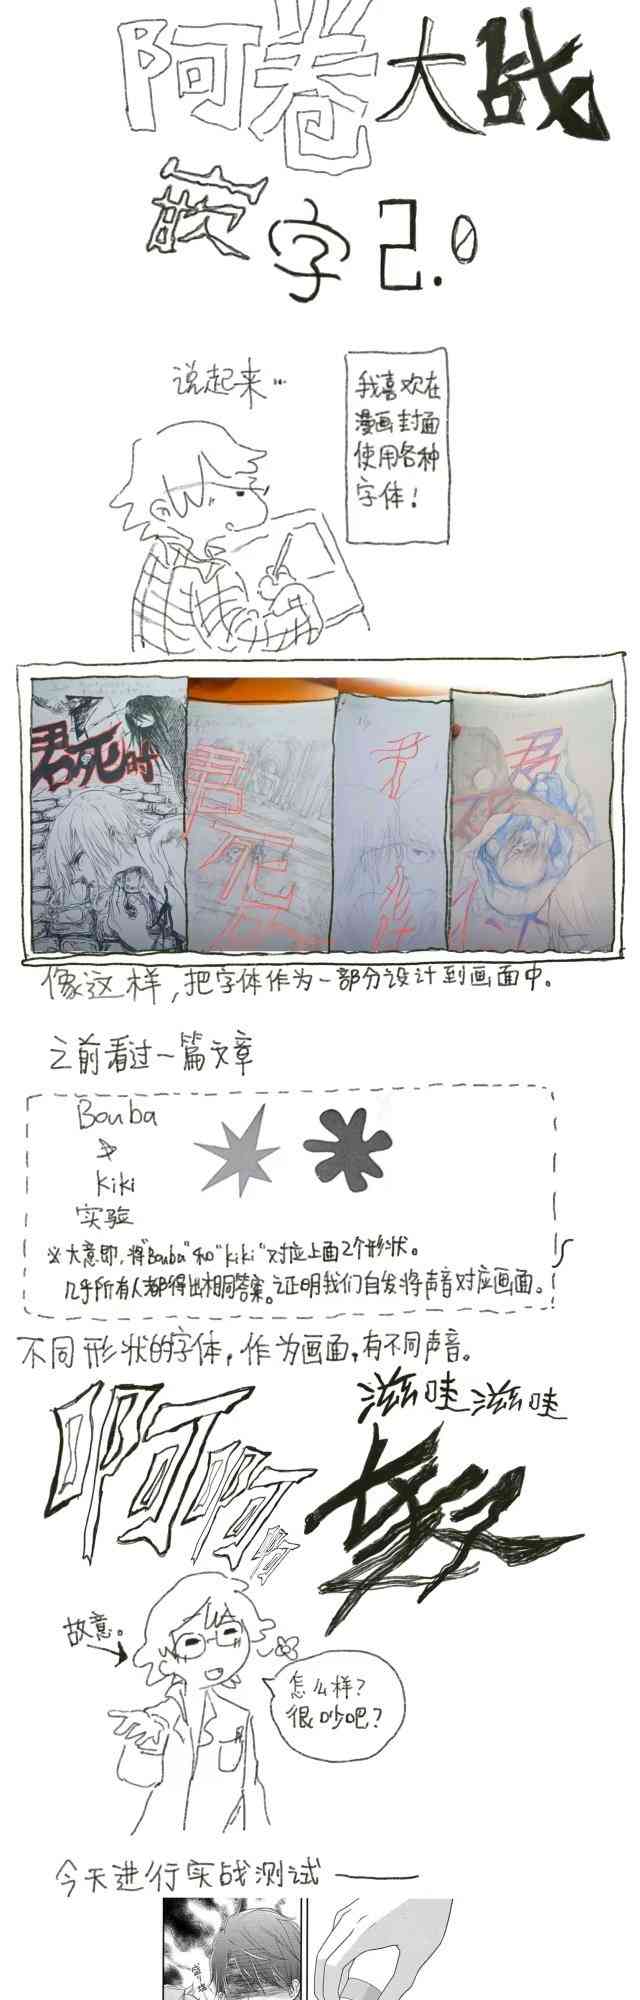 阿卷大战
嵌字2.0
说起来…
我喜欢在
漫画封面
使用各种
字体！
君死时
君死
君
君
像这样，把字体作为一部分设计到画面中。
之前看过一篇文章
Bouba
→
kiki
实验
※大意即，将"Bouba"和"kiki"对应上面2个形状。
几乎所有人都得出相同答案。证明我们自发将声音对应画面。
不同形状的字体，作为画面，有不同声音。
啊啊啊
滋哇滋哇
故意。
怎么样？
很吵吧？
今天进行实战测试——